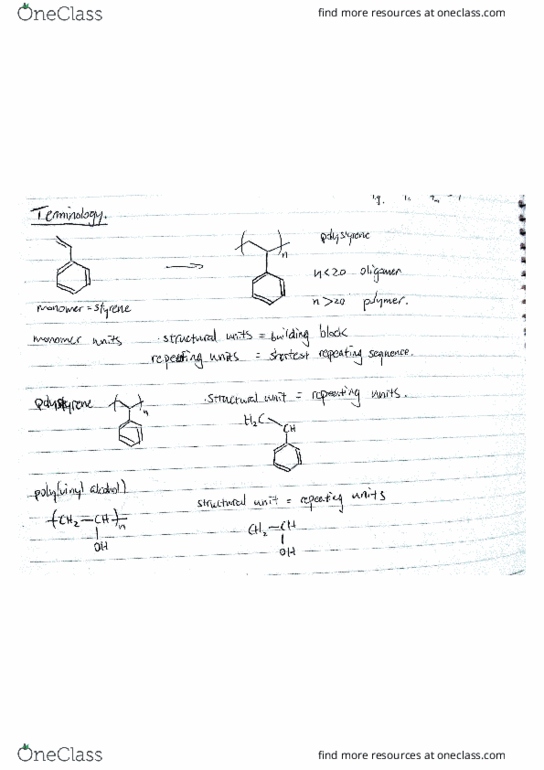 OneClass
find more resources at oneclass.com
Terminology.
n
polystyrene
n<20 oligomer
monomer = styrene
n>20 polymer.
monomer units
structural units = building block
repeating units = shortest repeating sequence.
polystyrene
n
structural unit = repeating units.
H2C
CH
poly(vinyl alcohol)
structural unit = repeating units
(CH2-CH)n
OH
CH2-CH
OH
OneClass
find more resources at oneclass.com